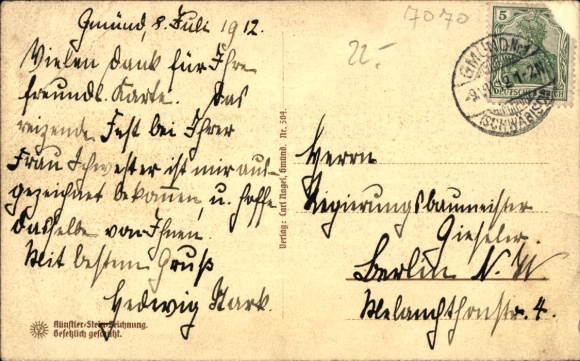 Gmünd, 8. Juli 1912.
Vielen Dank für Ihre
freundl. Karte. Das
reizende Fest bei Ihrer
Frau Schwester ist mir aus-
gezeichnet bekommen, u. hoffe
dasselbe von Ihnen.
Mit bestem Gruß
Hedwig Stark.
Künstler-Stein-Zeichnung.
Gesetzlich geschützt.
Verlag: Carl Nagel, Gmünd. Nr. 504.
7070
22.-
5
DEUTSCHES REICH
GMÜND No 1
1-2N
(SCHWÄBISCH)
Herrn
Regierungsbaumeister
Gieseler.
Berlin N. W
Melanchthonstr. 4.